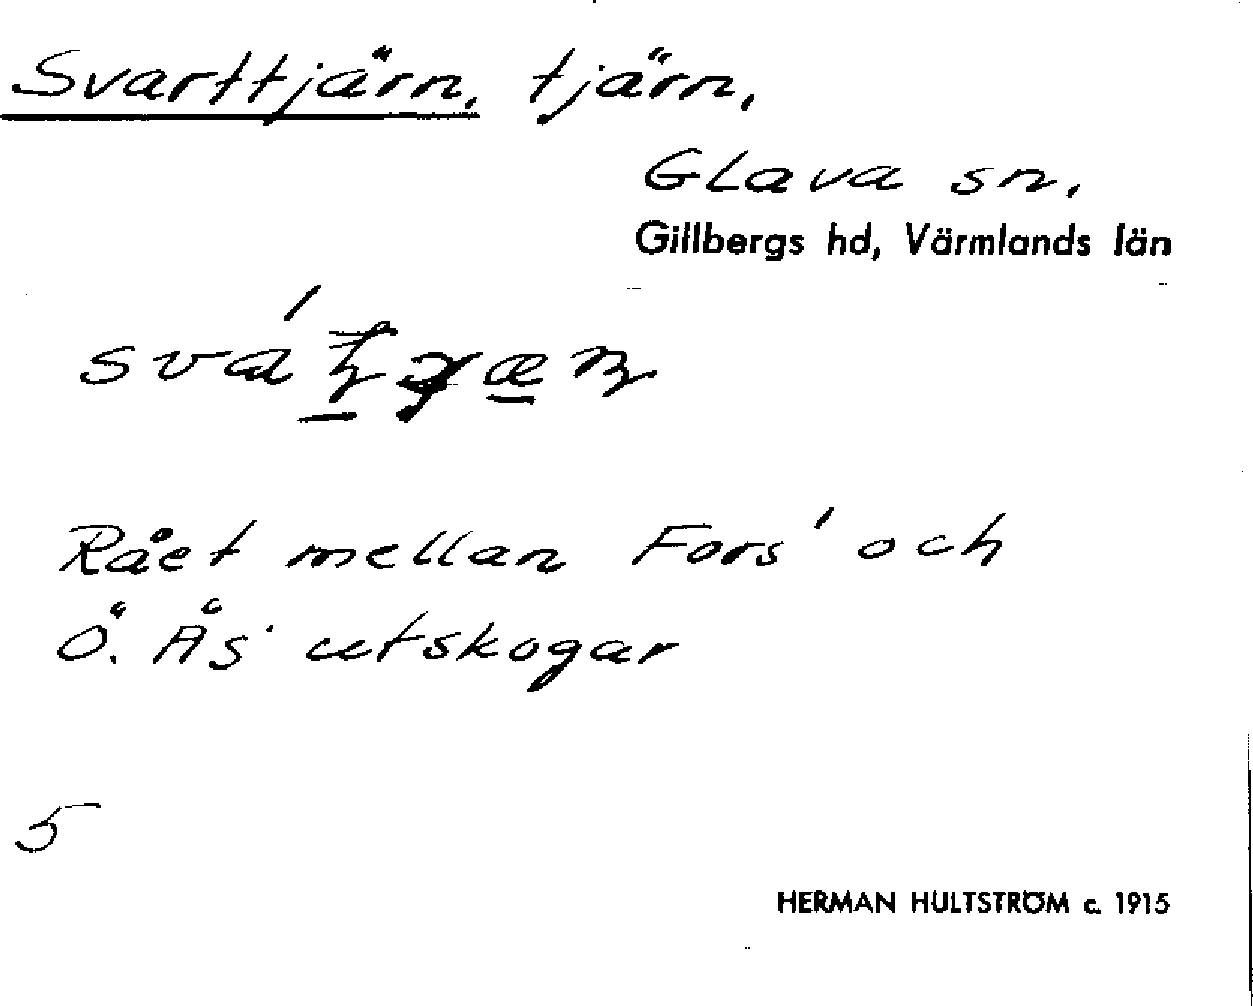 Svarttjärn, tjärn,
Glava sn,
Gillbergs hd, Värmlands län
Rået mellan Fors' och
Ö. Ås' utskogar
5
HERMAN HULTSTRÖM c. 1915